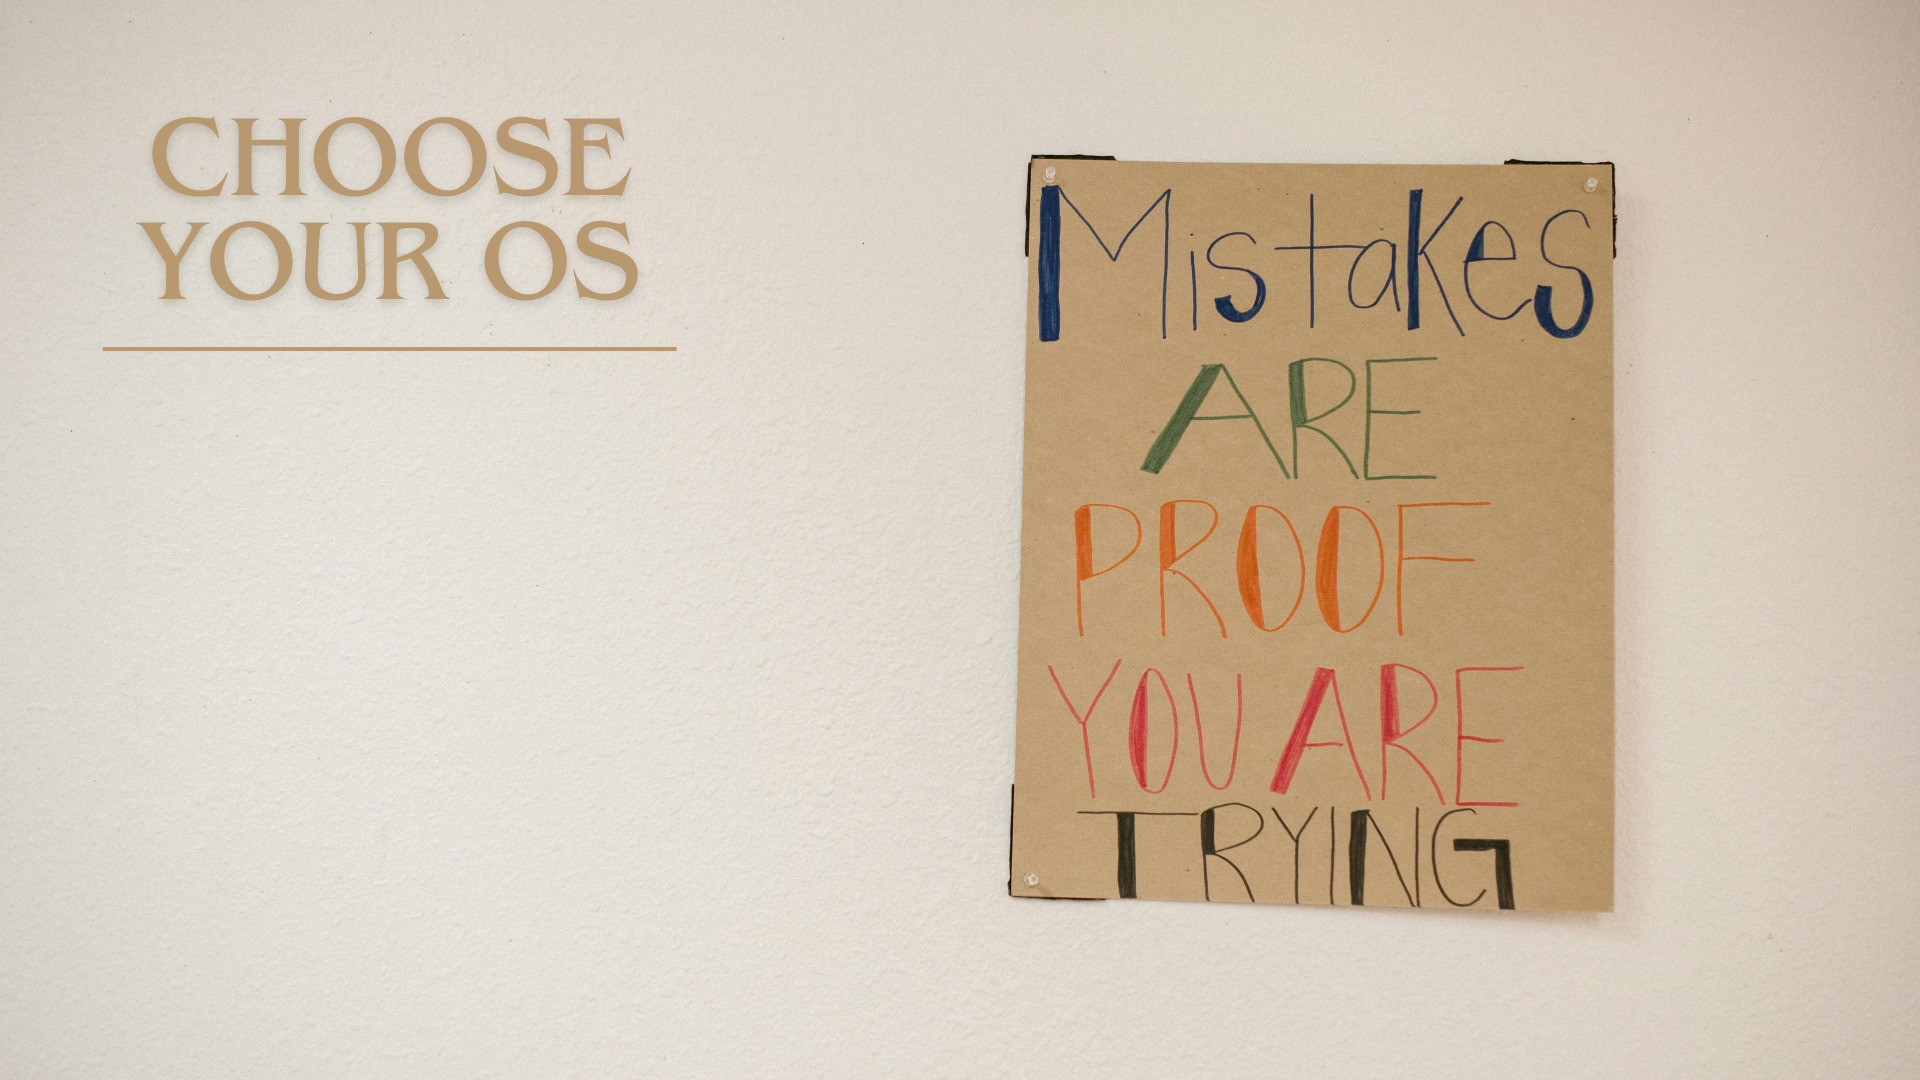 CHOOSE
YOUR OS
Mistakes
ARE
PROOF
YOU ARE
TRYING